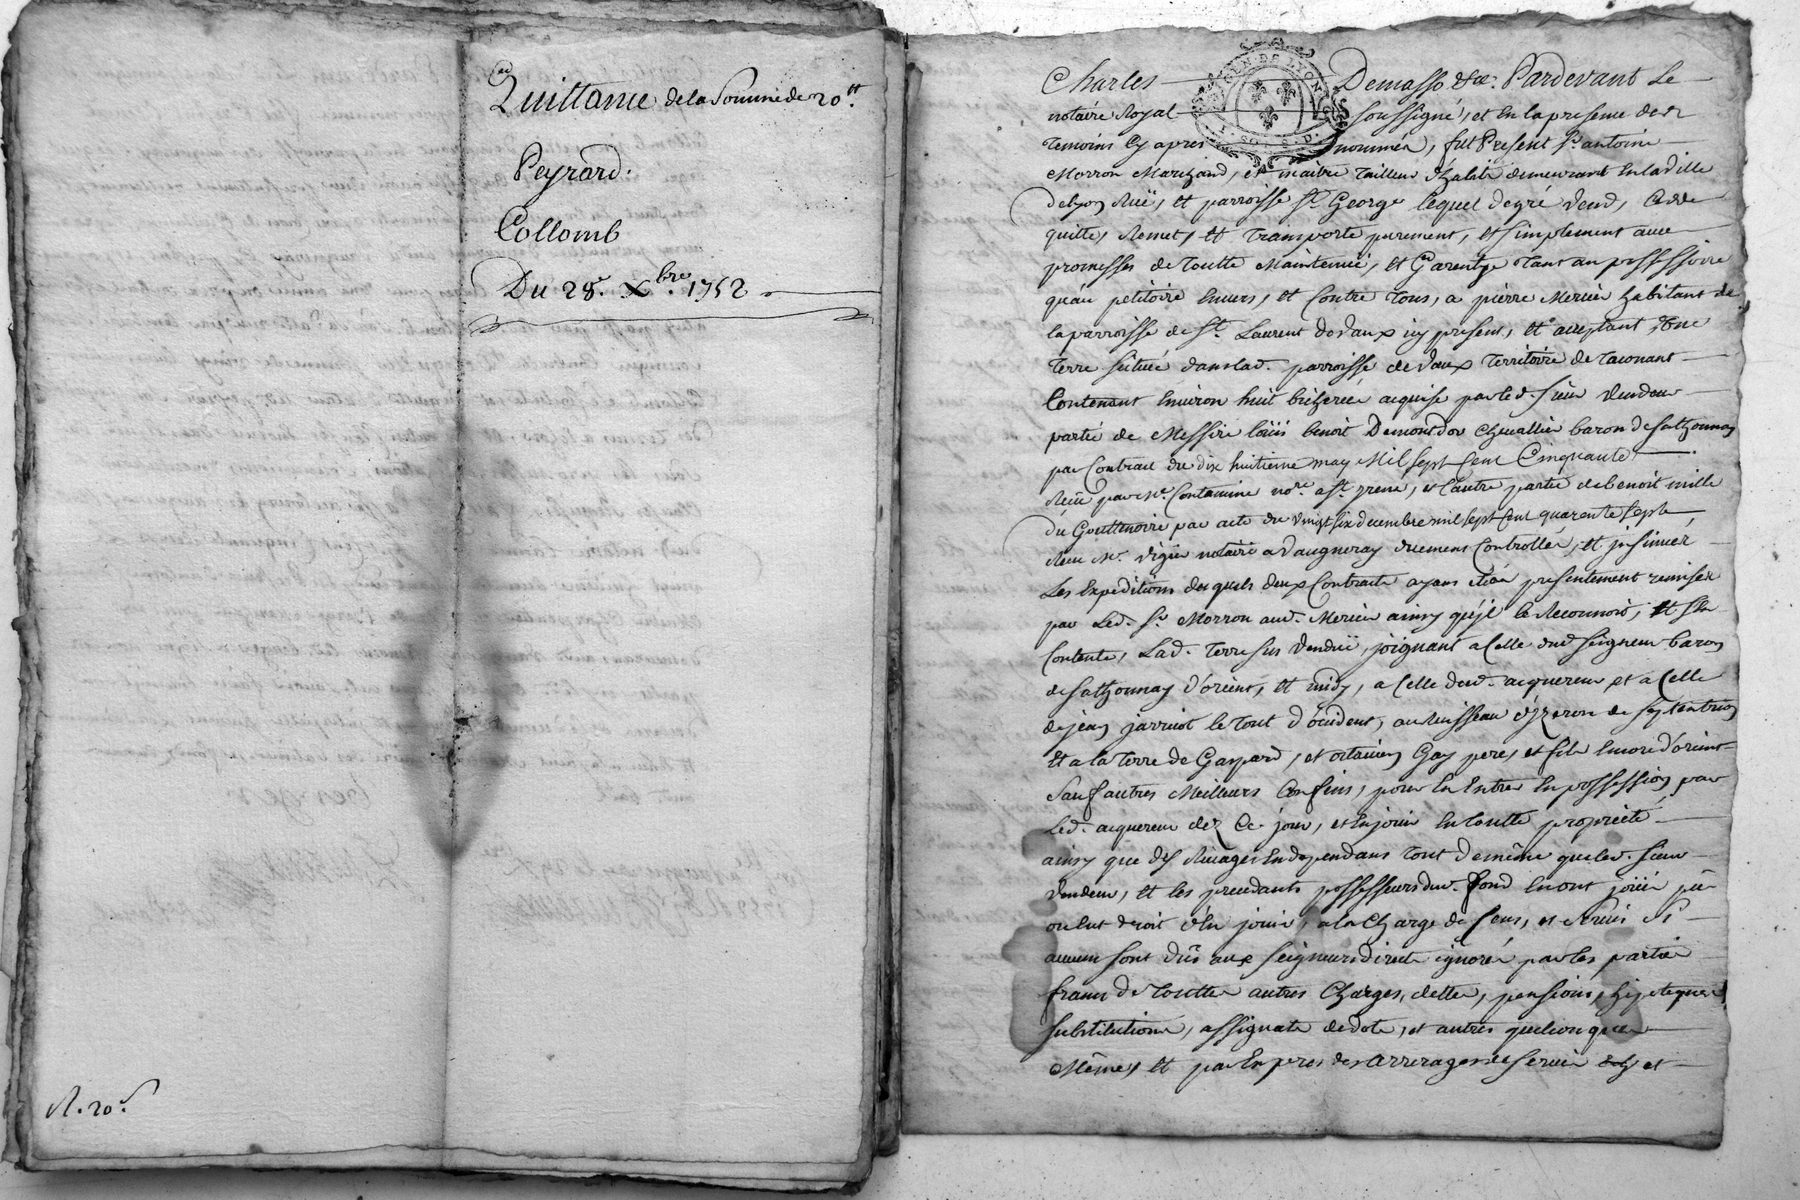 Quittance de la Somme de 20ᵗᵗ.
Peyrard.
Collomb
Du 28ᵉ. Xbre. 1752
R. 20ˢ
GEN. DE LYON
Charles Demasso &ce. Pardevant Le
notaire Royal soussigné, et En la presence des
Temoins Cy apres nommés, fut Present Sr. antoine
Morron Marchand, et maitre Tailleur d'habits demeurant En la ville
de Lyon Ruë, et parroisse St. George lequel de gré vend, Cede
quitte, Remet, et Transporte purement, et simplement avec
promesses de toutte Maintenuë, et Garentye tant au possessoire
qu'au petitoire Envers, et Contre Tous, a pierre Mercier habitant de
la parroisse de St. Laurent de Vaux icy present, et acceptant, Une
Terre scituée dans lad. parroisse de Vaux Territoire de Taconant
Contenant Environ huit bicherées acquise par led. sieur Vendeur
partie de Messire Loüis benoit Demontdor Chevallier baron de Sathonnay
par Contrait du dix huitieme may Mil sept Cent Cinquante
Reçu par Me. Contamine nore. a St. yrené, et l'autre partie de benoit mille
du Gouttenoire par acte du vingt six decembre mil sept Cent quarente sept
Reçu Me. Vigier notaire a Vaugneray duement Controllés, et insinués
Les Expeditions desquels deux Contraits ayans étées presentement remises
par Led. Sr. Morron aud. Mercier ainsy qu'il le Reconnoit, et s'En
Contente, Lad. Terre sus Venduë, joignant a Celle dud. Seigneur baron
de Sathonnay d'orient, et midy, a Celle dud. acquereur et a Celle
de jean jarricot le tout d'occident, au Ruisseau d'yzeron de septentrion
Et a la Terre de Gaspard, et Gay pere, et fils Encore d'orient
Sauf autres Meilleurs Confins, pour En Entrer En possession par
Led. acquereur dez Ce jour, et En jouir En toutte proprieté
ainsy que des En dependans tout de même que led. sieur
Vendeur, et les precedants possesseurs dud. fond En ont joüis pû
ou Eut droit d'En jouir, a la Charge de Cens, et Servis Si
aucuns sont dûs aux Seigneurs directs ignorés par les parties
franc de touttes autres Charges, dettes, pensions, hipoteques
substitutions, assignats de dote, et autres quelconques
Mêmes et par Exprés des arrerages de servis et